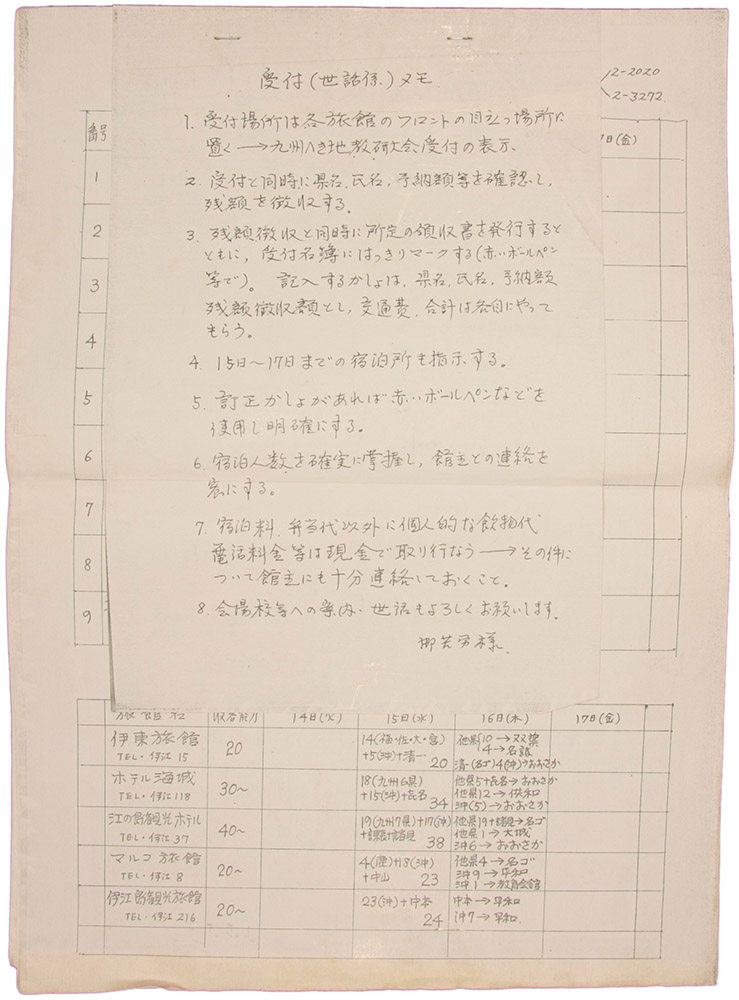 受付(世話係)メモ
2-2020
2-3272
1. 受付場所は各旅館のフロントの目立つ場所に
置く→九州へき地教研大会受付の表示、
2. 受付と同時に県名、氏名、予納額等を確認し、
残額を徴収する。
3. 残額徴収と同時に所定の領収書を発行すると
ともに、受付名簿にはっきりマークする(赤いボールペン
等で)。 記入するかしょは、県名、氏名、予納額
残額徴収額とし、交通費、合計は各自にやって
もらう。
4. 15日～17日までの宿泊所も指示する。
5. 訂正かしょがあれば赤いボールペンなどを
使用し明確にする。
6. 宿泊人数を確実に掌握し、館主との連絡を
密にする。
7. 宿泊料、弁当代以外に個人的な飲物代
電話料金等は現金で取り行なう→その件に
ついて館主にも十分連絡しておくこと。
8. 会場校等への案内・世話もよろしくお願いします。
御苦労様
番号
日(金)
1
2
3
4
5
6
7
8
9
旅館名 収容能力 14日(火) 15日(水) 16日(木) 17日(金)
伊東旅館 20 14(福・佐・大・宮) 他県10→双葉
TEL・伊江15 +5(沖)+清一 20 14→名護
4(沖)→おおさか
ホテル海城 30～ 18(九州6県) 他県5+長名→おおさか
TEL・伊江118 +15(沖)+長名 34 他県12→供和
沖(5)→おおさか
江の島観光ホテル 40～ 19(九州7県)+17(沖) 他県19+諸見→名ゴ
TEL・伊江37 諸見 38 他県1→大城
沖6→おおさか
マルコ旅館 20～ 4(鹿)+18(沖) 他県4→名ゴ
TEL・伊江8 +中山 23 沖9→平和
沖1→教育会館
伊江島観光旅館 20～ 23(沖)+中本 中本→平和
TEL・伊江216 24 沖7→平和